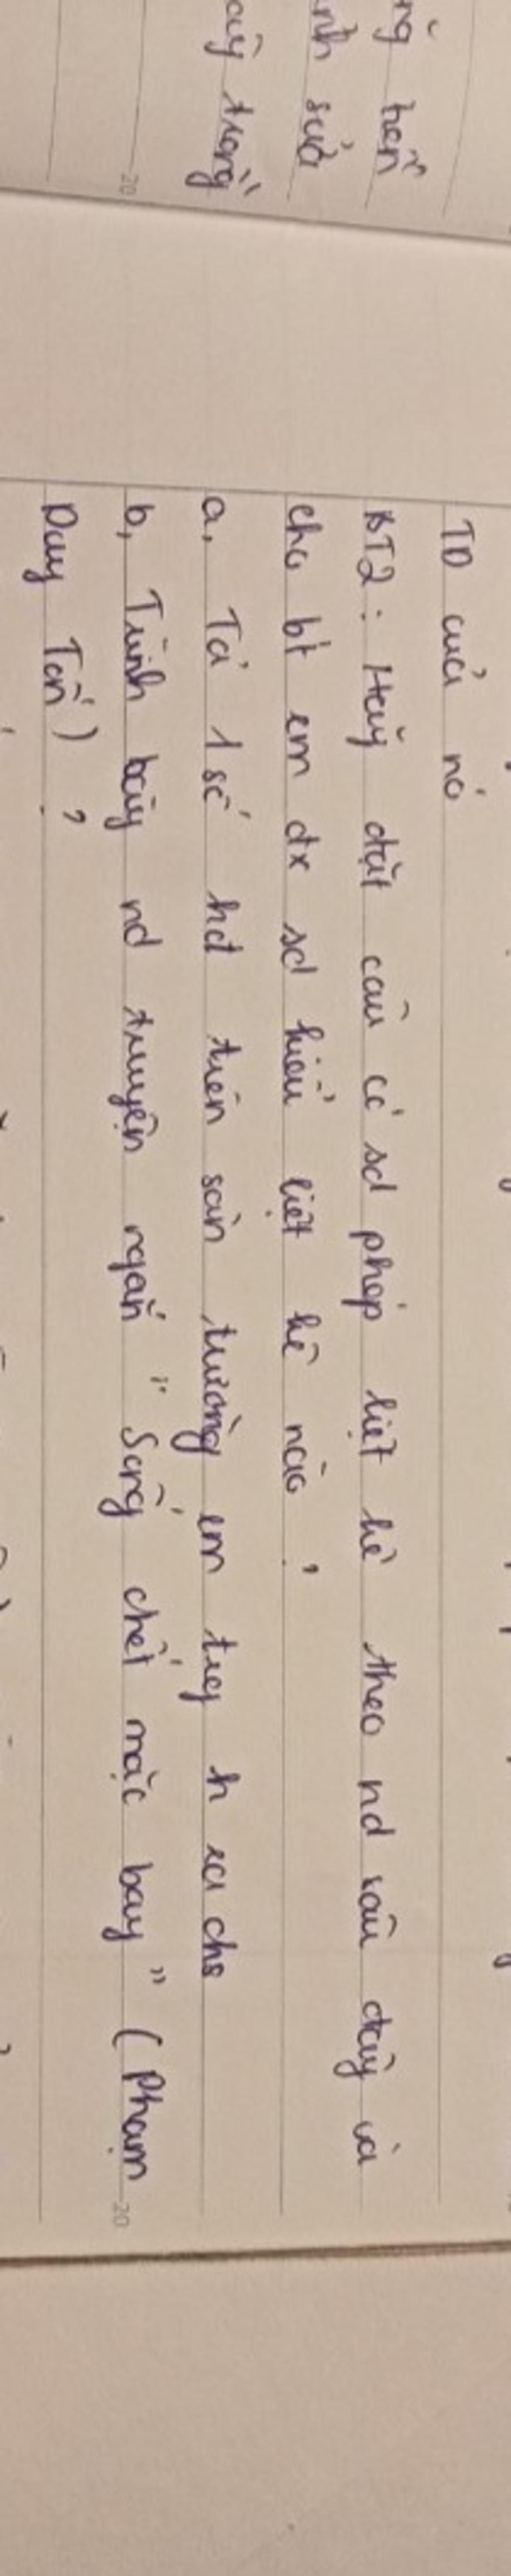 ng hơn
nh sửa
ây trong
TD của nó
BT2: Hãy đặt câu có sd phép liệt kê theo nd sau đây và
cho bt em đx sd kiểu liệt kê nào.
a, Tả 1 số hđ trên sân trường em trg h ra chơ
b, Trình bày nd truyện ngắn "Sống chết mặc bay" (Phạm
Duy Tốn)
20
20